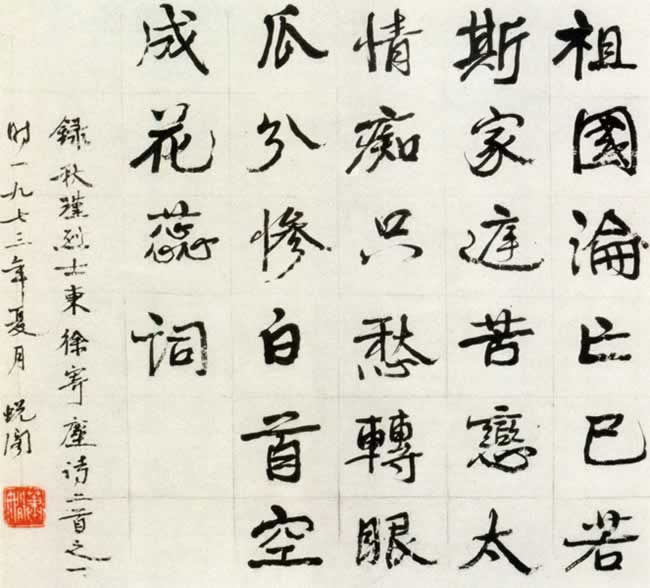 祖國淪亡已若
斯家庭苦戀太
情痴只愁轉眼
瓜分慘白首空
成花蕊詞
錄秋瑾烈士柬徐寄塵詩二首之一
时一九七三年夏月 蜕阁